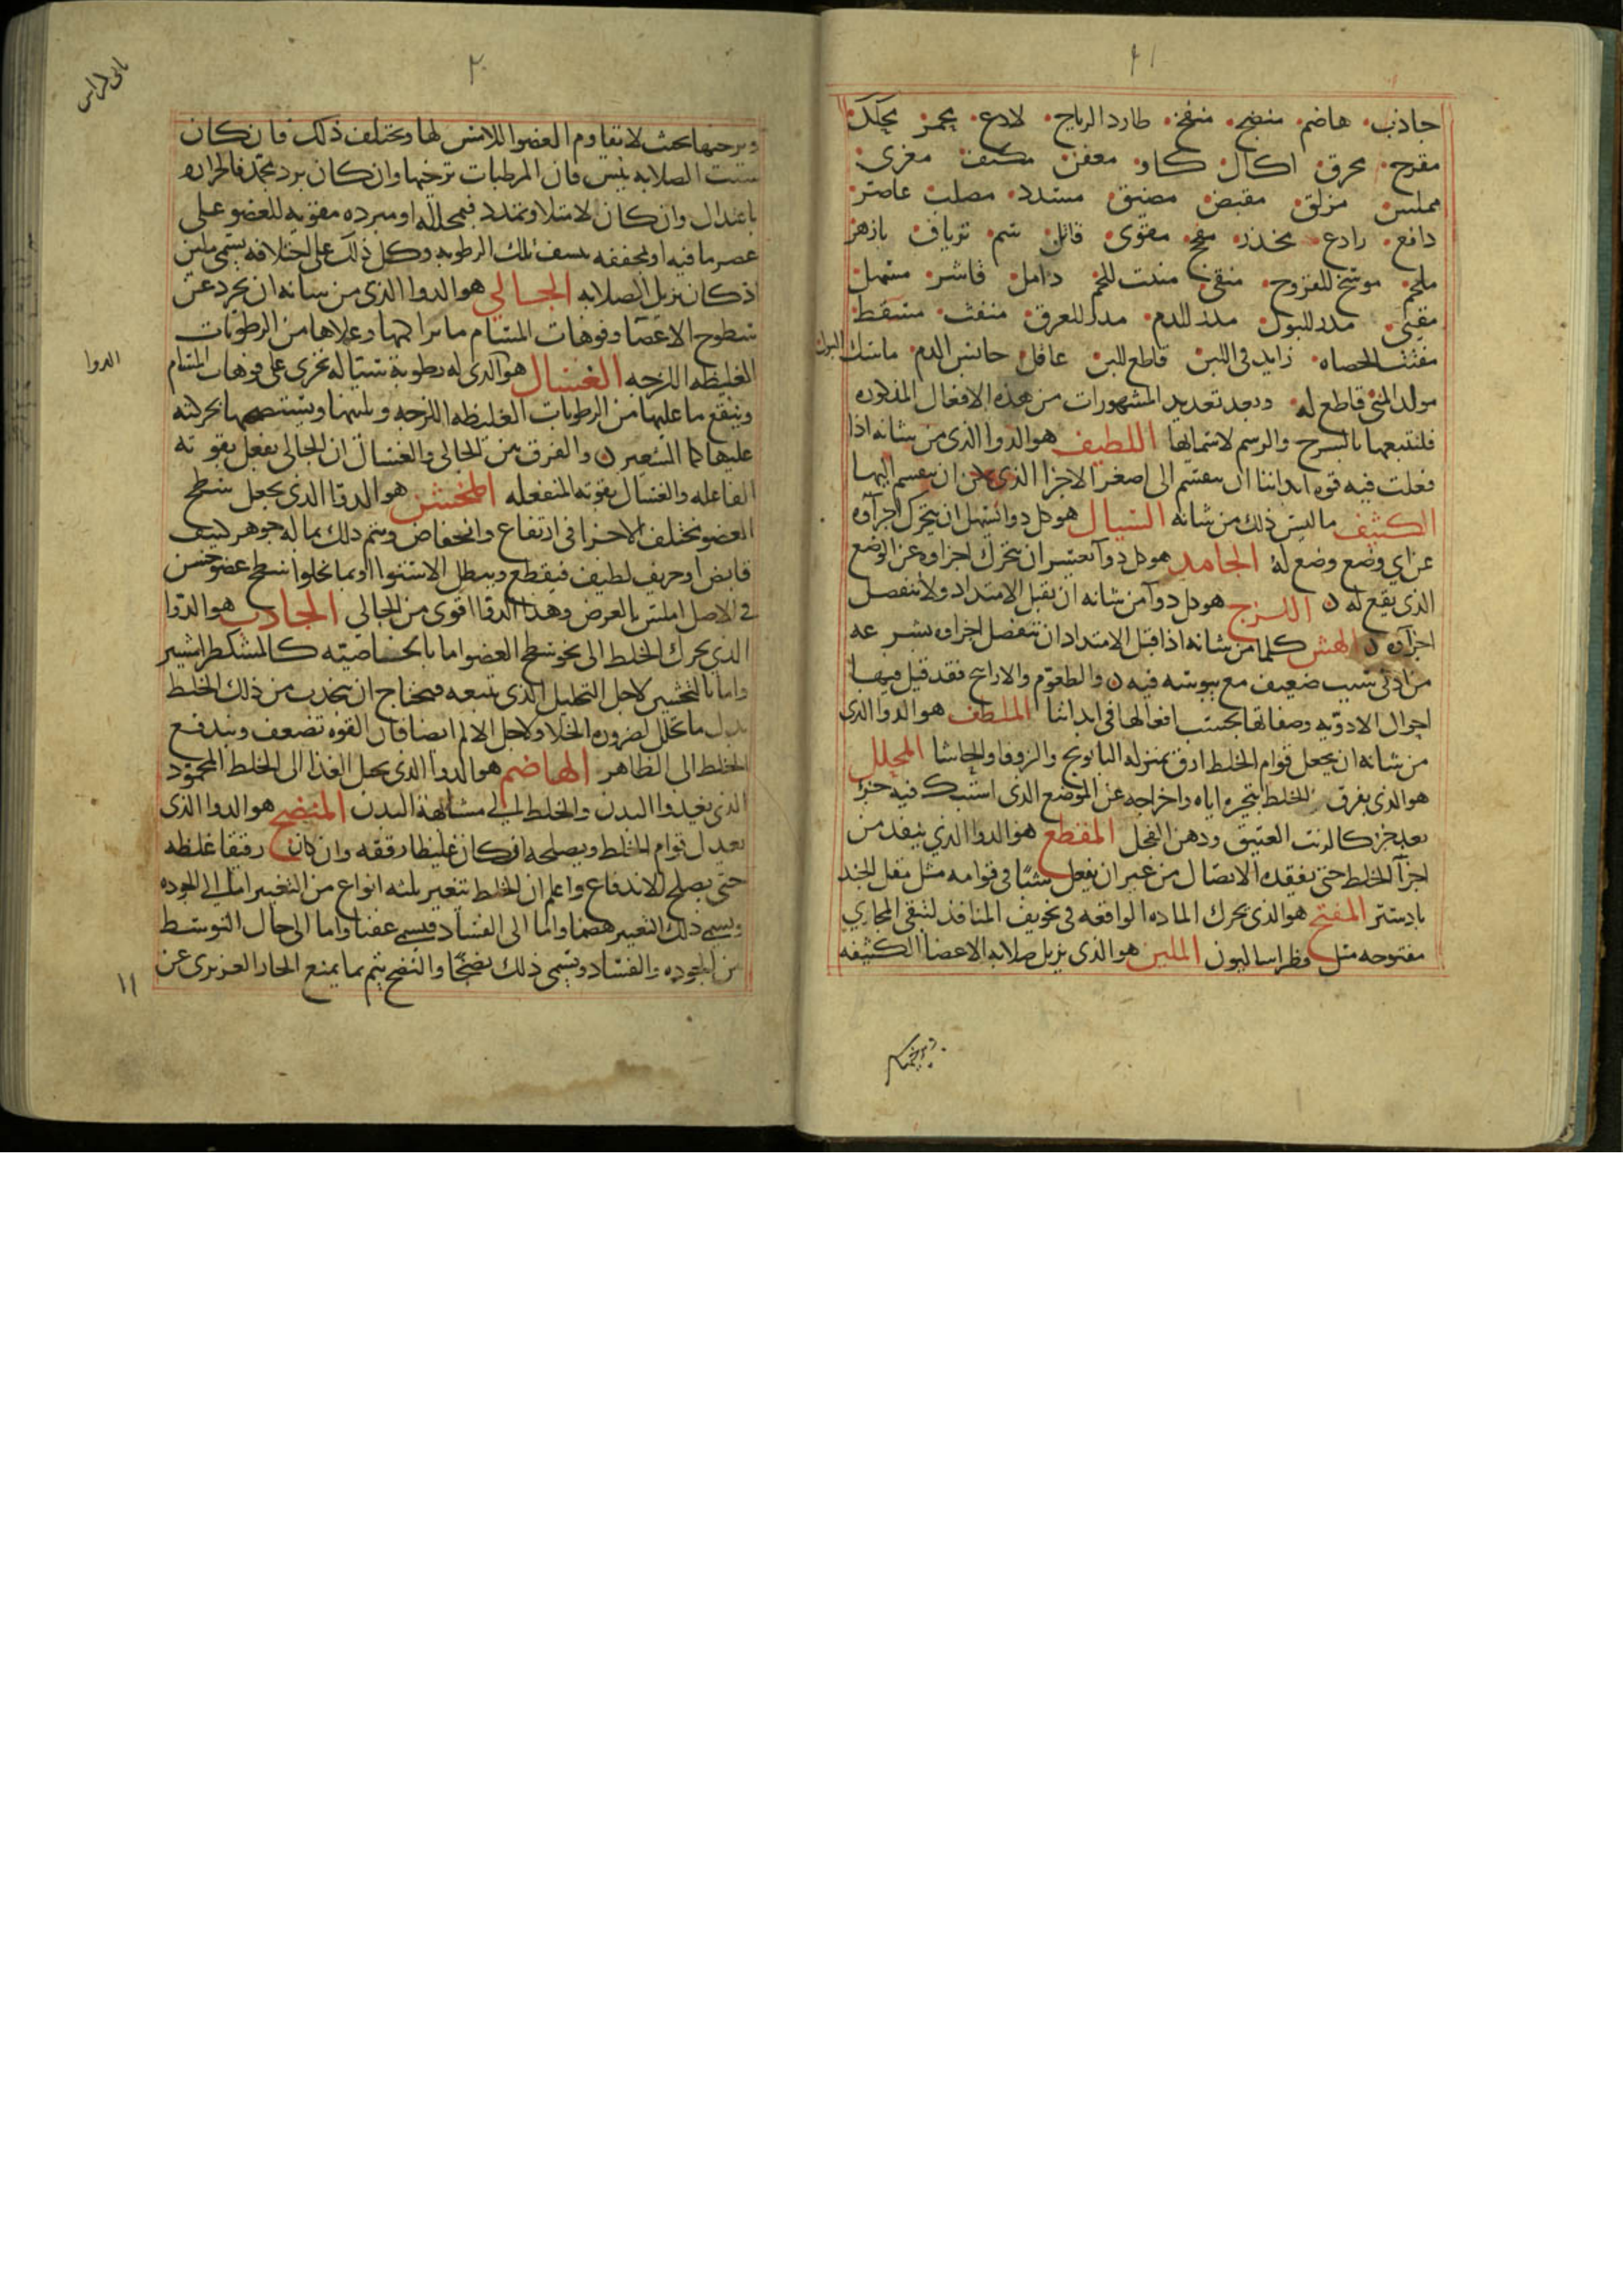 ٢١
جاذب هاضم منضج منفخ طارد الرياح لاذع محمر محكك
مقرح محرق اكال كاو معفن مكثف مغرى
مملس مزلق مقبض مضيق مسدد مصلب عاصر
دافع رادع مخدر مفجج مقوى قاتل سم ترياق بازهر
ملحم موسخ للقروح منقى منبت للحم دامل قاشر مسهل
مقيى مدر للبول مدر للدم مدر للعرق منفث مسقط
مفتت الحصاه زايد فى اللبن قاطع للبن عاقل حابس الدم ماسك البول
مولد المنى قاطع له وبعد تعديد المشهورات من هذه الافعال المذكوره
فلنتبعها بالشرح والرسم لاسمايها اللطيف هو الدوا الذى من شانه اذا
فعلت فيه قوه ابداننا ان ينقسم الى اصغر الاجزا الذى يمكن ان ينقسم اليها
الكثيف ما ليس ذلك من شانه السيال هو كل دوا يسهل ان يتحرك اجزاوه
عن اي وضع وضع له الجامد هو كل دوا يعسر ان يتحرك اجزاوه عن الوضع
الذى يقع له اللزج هو كل دوا من شانه ان يقبل الامتداد ولا تنفصل
اجزاوه الهش كلما من شانه اذا قبل الامتداد ان تنفصل اجزاوه بسرعه
من ادنى سبب ضعيف مع يبوسه فيه والطعوم والاراييح فقد قيل فيها
احوال الادويه وصفاتها بحسب افعالها فى ابداننا الملطف هو الدوا الذى
من شانه ان يجعل قوام الخلط ارق بمنزله البابونج والزوفا والحاشا المحلل
هو الذى يفرق الخلط بتبخيره اياه واخراجه عن الموضع الذى اشتبك فيه جزء
بعد جزء كالزيت العتيق ودهن الفجل المقطع هو الدوا الذي ينفد من
اجزا الخلط حتى يفقده الاتصال من غير ان يفعل شيئا فى قوامه مثل مقل الجند
بادستر المفتح هو الذى يحرك الماده الواقعه فى تجويف المنافد لتبقى المجاري
مفتوحه مثل فطراساليون الملين هو الذى يزيل صلابه الاعضا الكثيفه
ويرخيها
٢٠
ويرخيها بحيث لا تقاوم العضو اللامس لها ويختلف ذلك فان كان
سبب الصلابه يبس فان المرطبات ترخيها وان كان برد يجمد فالحراره
باعتدال وان كان لامتلا وتمدد فبمحلله او مبرده مقويه للعضو على
عصر ما فيه او مجففه ينشف تلك الرطوبه وكل ذلك على اختلافه يسمى ملين
اذ كان يزيل الصلابه الجالي هو الدوا الذى من شانه ان يجرد عن
سطوح الاعضا وفوهات المسام ما تراكمها وعلاها من الرطوبات
الغليظه اللزجه الغسال هو الذى له رطوبه سياله تجرى على فوهات المسام
الدوا
وينقع ما عليها من الرطوبات الغليظه اللزجه ويلينها ويستصحبها بحركته
عليها كما الشعير والفرق بين الجالى والغسال ان الجالى يفعل بقوته
الفاعله والغسال بقوته المنفعله المخشن هو الدوا الذى يجعل سطح
العضو مختلف الاجزا فى ارتفاع وانخفاض ويتم ذلك بما له جوهر كثيف
قابض او حريف لطيف فيقطع ويبطل الاستوا او بما يجلوا سطح عضو خشن
فى الاصل املس بالعرض وهذا الدوا اقوى من الجالى الجاذب هو الدوا
الذي يحرك الخلط الى نحو سطح العضو اما بالخاصيته كالمشكطرامشير
واما بالتحشير لاجل التحليل الذى يتبعه فيحتاج ان يجذب من ذلك الخلط
بدل ما تحلل لضروره الخلا ولاجل الالم ايضا فان القوه تضعف ويندفع
الخلط الى الظاهر الهاضم هو الدوا الذى يحيل الغذا الى الخلط المحمود
الذى يغيدوا البدن والخلط الى مشابهة البدن المنضج هو الدوا الذى
يعدل قوام الخلط ويصلحه ان كان غليظا رققه وان كان رقيقا غلظه
حتى يصلح للاندفاع واعلم ان الخلط تتغير بثلثه انواع من التغيير اما الى الجوده
ويسمى ذلك التغيير هضما واما الى الفساد فيسمى عفنا واما الى حال التوسط
بين الجوده والفساد ويسمى ذلك نضجا والنضج يتم بما يمنع الحار الغريزى عن
١١